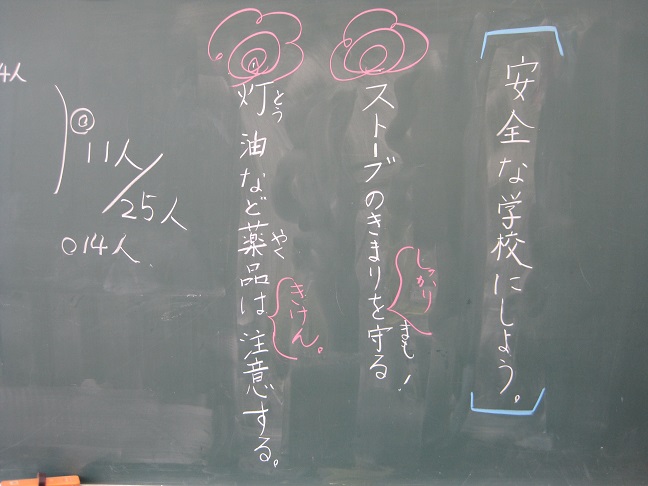 安全な学校にしよう。
ストーブのきまりを守る
まも!
しっかり
灯油など薬品は注意する。
とう
やく
きけん。
11人
25人
014人
4人